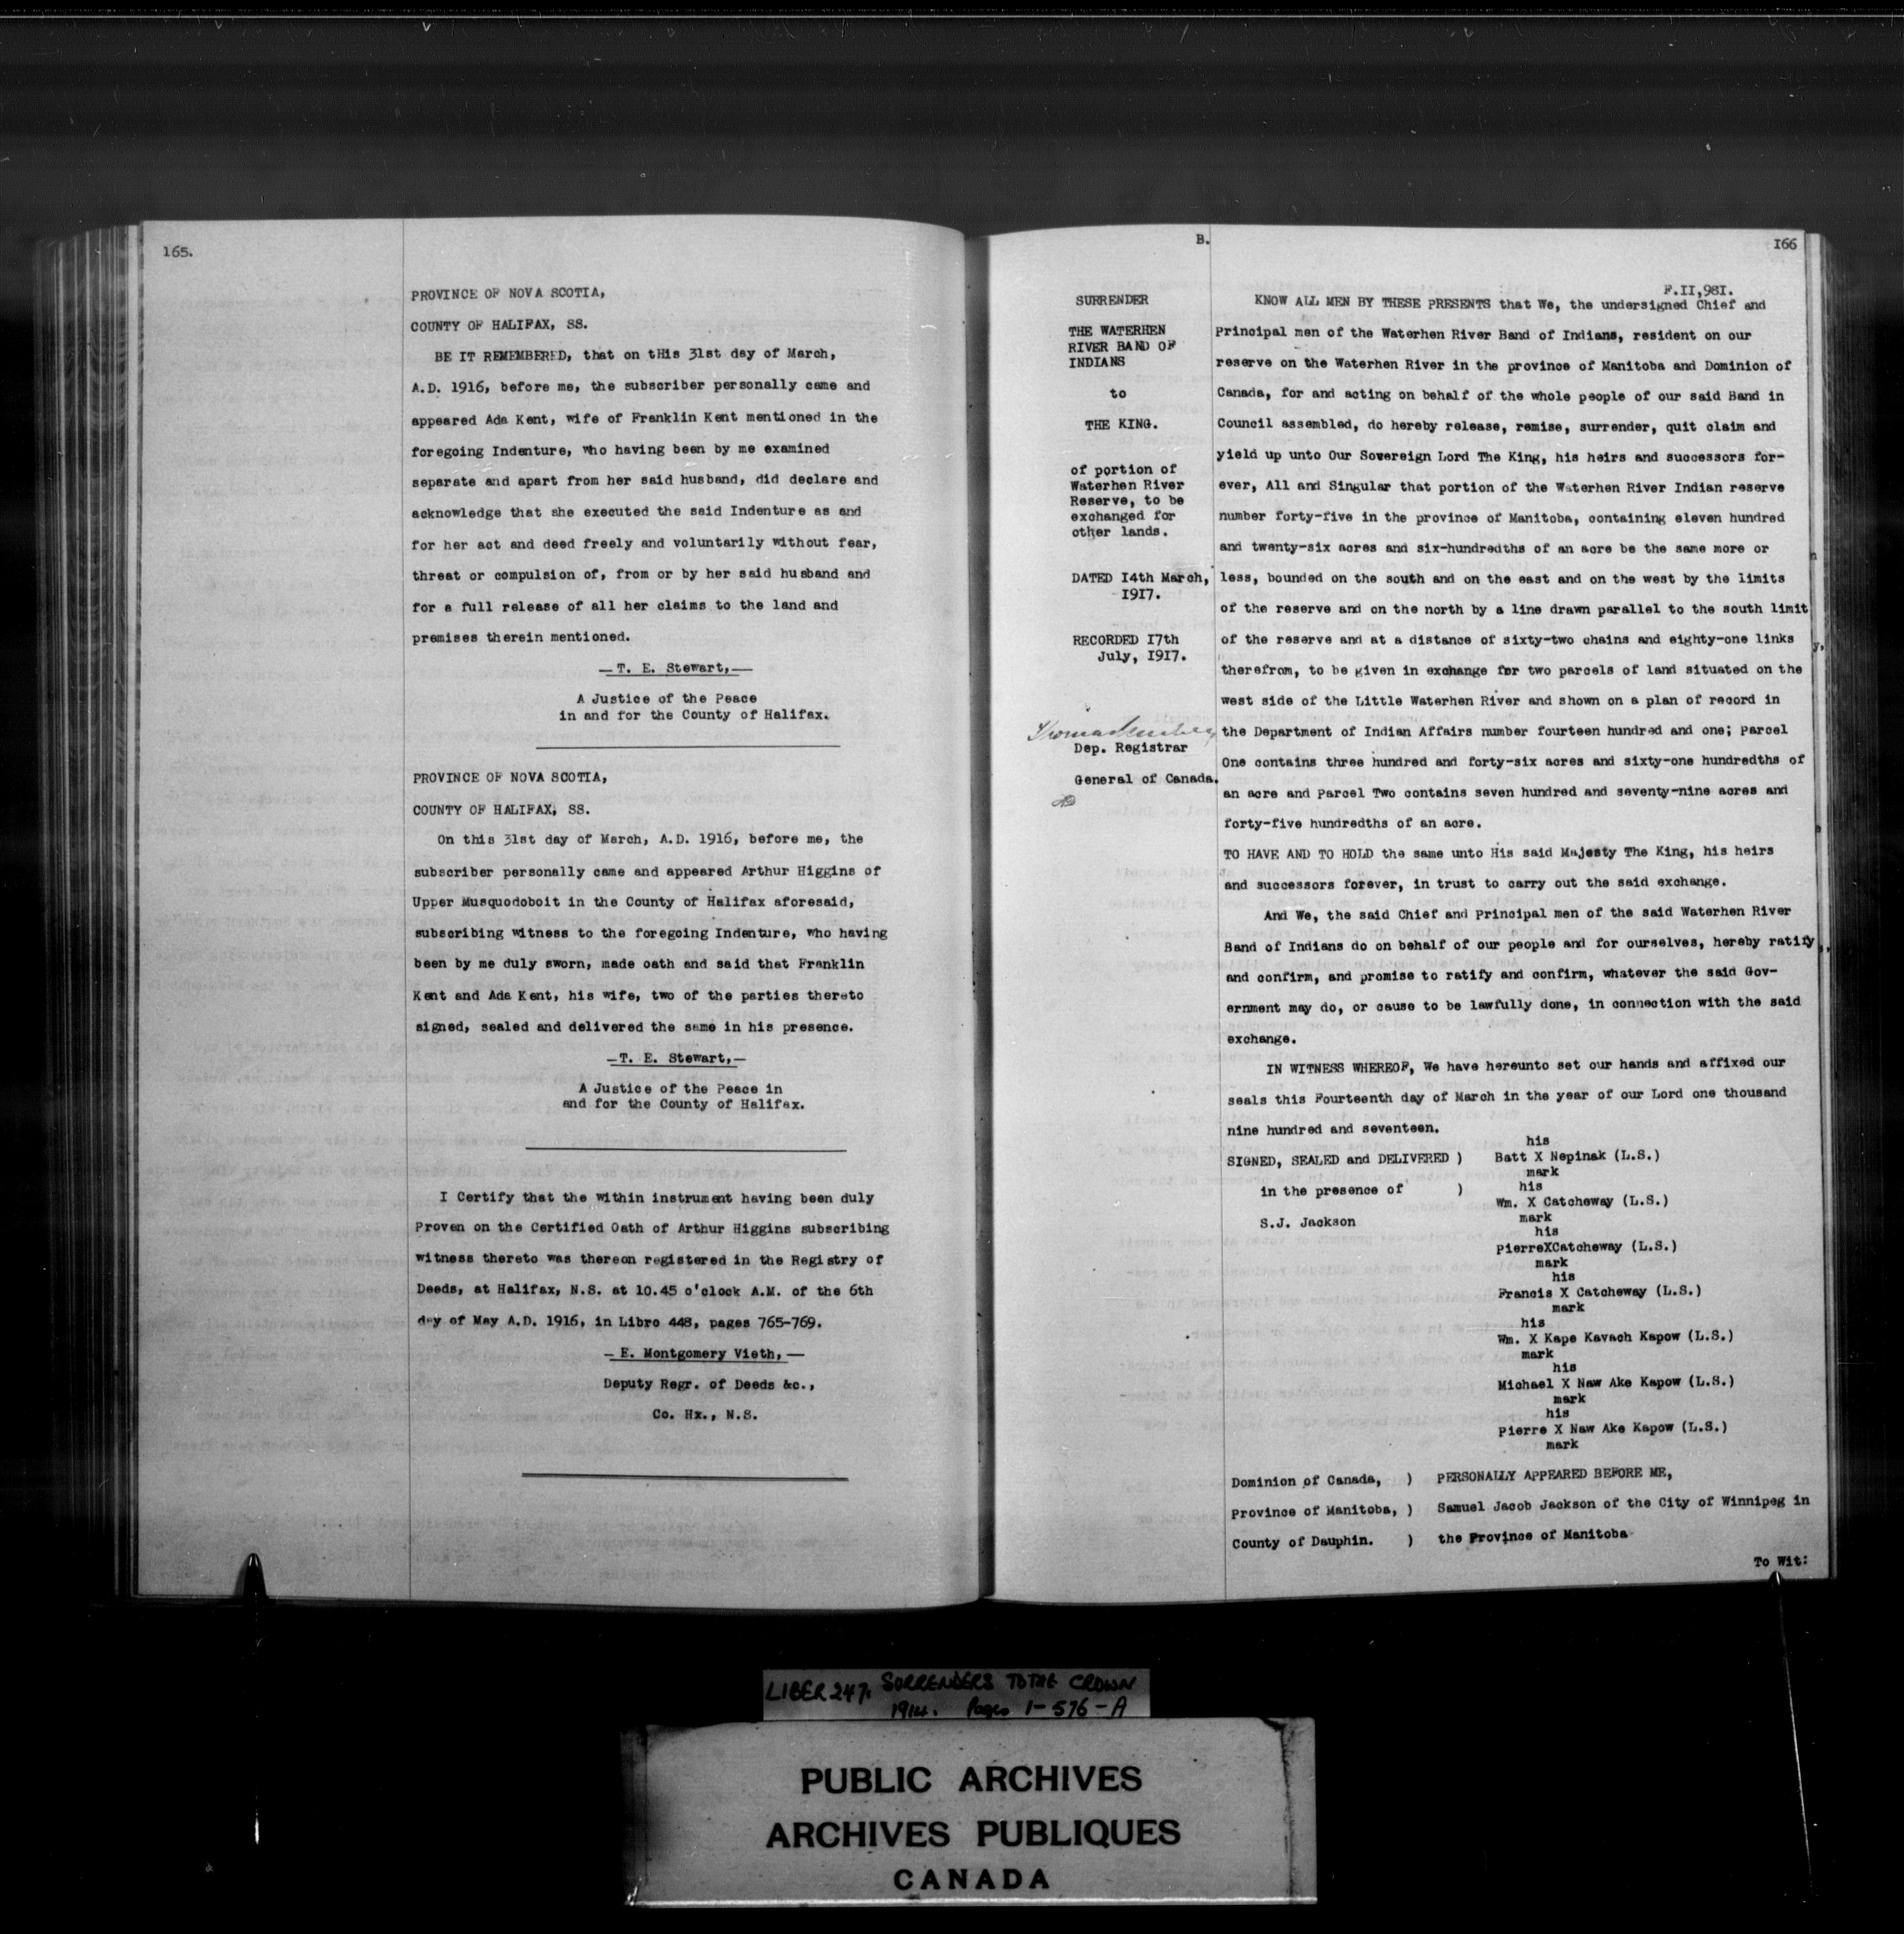 165.
PROVINCE OF NOVA SCOTIA,
COUNTY OF HALIFAX, SS.
BE IT REMEMBERED, that on tHis 31st day of March,
A.D. 1916, before me, the subscriber personally came and
appeared Ada Kent, wife of Franklin Kent mentioned in the
foregoing Indenture, who having been by me examined
separate and apart from her said husband, did declare and
acknowledge that she executed the said Indenture as and
for her act and deed freely and voluntarily without fear,
threat or compulsion of, from or by her said husband and
for a full release of all her claims to the land and
premises therein mentioned.
—T. E. Stewart,—
A Justice of the Peace
in and for the County of Halifax.
PROVINCE OF NOVA SCOTIA,
COUNTY OF HALIFAX, SS.
On this 31st day of March, A.D. 1916, before me, the
subscriber personally came and appeared Arthur Higgins of
Upper Musquodoboit in the County of Halifax aforesaid,
subscribing witness to the foregoing Indenture, who having
been by me duly sworn, made oath and said that Franklin
Kent and Ada Kent, his wife, two of the parties thereto
signed, sealed and delivered the same in his presence.
—T. E. Stewart,—
A Justice of the Peace in
and for the County of Halifax.
I Certify that the within instrument having been duly
Proven on the Certified Oath of Arthur Higgins subscribing
witness thereto was thereon registered in the Registry of
Deeds, at Halifax, N.S. at 10.45 o'clock A.M. of the 6th
day of May A.D. 1916, in Libro 448, pages 765-769.
— E. Montgomery Vieth, —
Deputy Regr. of Deeds &c.,
Co. Hx., N.S.
B.
166
SURRENDER
THE WATERHEN
RIVER BAND OF
INDIANS
to
THE KING.
of portion of
Waterhen River
Reserve, to be
exchanged for
other lands.
DATED I4th March,
I9I7.
RECORDED I7th
July, I9I7.
Dep. Registrar
General of Canada.
F.II,98I.
KNOW ALL MEN BY THESE PRESENTS that We, the undersigned Chief and
Principal men of the Waterhen River Band of Indians, resident on our
reserve on the Waterhen River in the province of Manitoba and Dominion of
Canada, for and acting on behalf of the whole people of our said Band in
Council assembled, do hereby release, remise, surrender, quit claim and
yield up unto Our Sovereign Lord The King, his heirs and successors for-
ever, All and Singular that portion of the Waterhen River Indian reserve
number forty-five in the province of Manitoba, containing eleven hundred
and twenty-six acres and six-hundredths of an acre be the same more or
less, bounded on the south and on the east and on the west by the limits
of the reserve and on the north by a line drawn parallel to the south limit
of the reserve and at a distance of sixty-two chains and eighty-one links
therefrom, to be given in exchange for two parcels of land situated on the
west side of the Little Waterhen River and shown on a plan of record in
the Department of Indian Affairs number fourteen hundred and one; Parcel
One contains three hundred and forty-six acres and sixty-one hundredths of
an acre and Parcel Two contains seven hundred and seventy-nine acres and
forty-five hundredths of an acre.
TO HAVE AND TO HOLD the same unto His said Majesty The King, his heirs
and successors forever, in trust to carry out the said exchange.
And We, the said Chief and Principal men of the said Waterhen River
Band of Indians do on behalf of our people and for ourselves, hereby ratify
and confirm, and promise to ratify and confirm, whatever the said Gov-
ernment may do, or cause to be lawfully done, in connection with the said
exchange.
IN WITNESS WHEREOF, We have hereunto set our hands and affixed our
seals this Fourteenth day of March in the year of our Lord one thousand
nine hundred and seventeen.
his
SIGNED, SEALED and DELIVERED ) Batt X Nepinak (L.S.)
mark
in the presence of ) his
Wm. X Catcheway (L.S.)
S.J. Jackson mark
his
PierreXCatcheway (L.S.)
mark
his
Francis X Catcheway (L.S.)
mark
his
Wm. X Kape Kavach Kapow (L.S.)
mark
his
Michael X Naw Ake Kapow (L.S.)
mark
his
Pierre X Naw Ake Kapow (L.S.)
mark
Dominion of Canada, ) PERSONALLY APPEARED BEFORE ME,
Province of Manitoba, ) Samuel Jacob Jackson of the City of Winnipeg in
County of Dauphin. ) the Province of Manitoba
To Wit:
LIBER 247. SURRENDERS TO THE CROWN
1914. Pages 1-576-A
PUBLIC ARCHIVES
ARCHIVES PUBLIQUES
CANADA